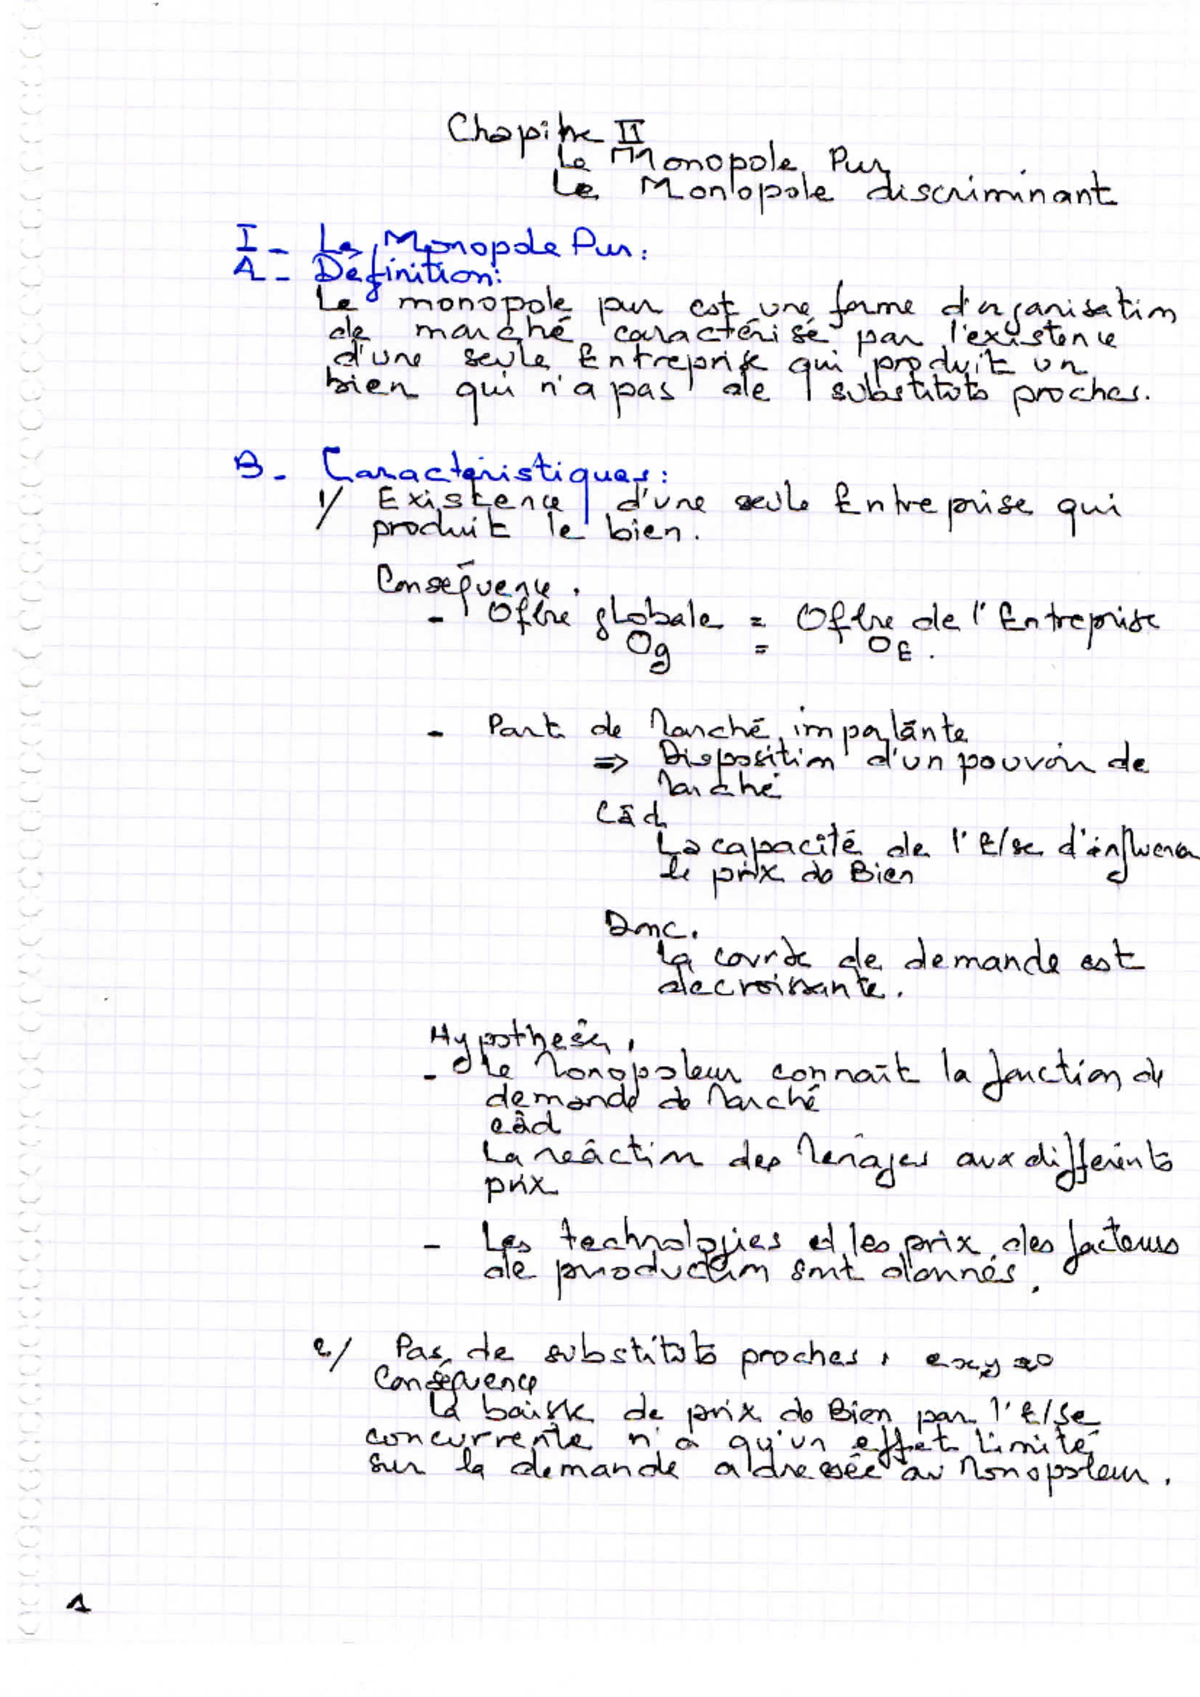 Chapitre II
Le Monopole Pur
Le Monopole discriminant
I - Le Monopole Pur :
A - Définition :
Le monopole pur est une forme d'organisation
de marché caractérisé par l'existence
d'une seule Entreprise qui produit un
bien qui n'a pas de substituts proches.
B - Caractéristiques :
1/ Existence d'une seule Entreprise qui
produit le bien.
Conséquence :
- Offre globale = Offre de l'Entreprise
Og = OE.
- Part de Marché importante
=> Disposition d'un pouvoir de
Marché
Càd
La capacité de l'E/se d'influencer
le prix do Bien
Donc.
La courbe de demande est
decroissante.
Hypothese :
- Le Monopoleur connaît la fonction de
demande de Marché
càd
La reaction des Menages aux differents
prix
- Les technologies et les prix des facteurs
de production sont donnés.
2/ Pas de substituts proches : exy ≈ 0
Conséquence
La baisse de prix do Bien par l'E/se
concurrente n'a qu'un effet limité
sur la demande adressée au Monopoleur.
1